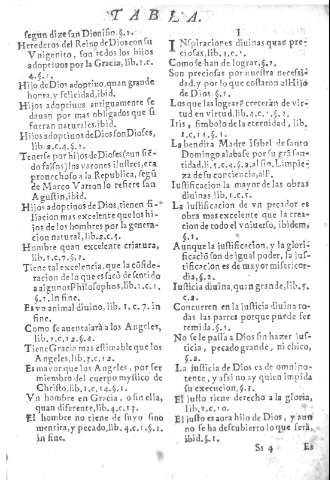 TABLA.
segun dize san Dionisio. §.2.
Herederos del Reino de Dios con su
Vnigenito, son todos los hijos
adoptiuos por la Gracia, lib. 1. c.
4. §. 1.
Hijo de Dios adoptiuo, quan grande
honra, y felicidad, ibid.
Hijos adoptiuos antiguamente se
dauan por mas obligados que si
fueran naturales. ibid.
Hijos adoptiuos de Dios son Dioses,
lib. 2. c. 4. §. 1.
Tenerse por hijos de Dioses (aun siẽ-
do falsos) los varones ilustres, era
prouechoso a la Republica, segũ
de Marco Varron lo refiere san
Agustin, ibid.
Hijos adoptiuos de Dios, tienen fi-
liacion mas excelente que los hi-
jos de los hombres por la genera-
cion natural, lib. 2. c. 5.
Hombre quan excelente criatura,
lib. 1. c. 7. §. 2.
Tiene tal excelencia, que la cõside-
racion de lo que es sacó de sentido
a algunos Philosophos, lib. 1. c. 1.
§. 2. in fine.
Es vn animal diuino, lib. 1. c. 7. in
fine.
Como se auentajará a los Angeles,
lib. 1. c. 12. §. 4.
Tiene Gracia mas estimable que los
Angeles, lib. 3. c. 12.
Es mayor que los Angeles, por ser
miembro del cuerpo mystico de
Christo, lib. 1. c. 14. §. 1.
Vn hombre en Gracia, o sin ella,
quan diferente, lib. 4. c. 13.
El hombre no tiene de suyo sino
mentira, y pecado, lib. 4. c. 10. §. 1.
in fine.
I
INspiraciones diuinas quan pre-
ciosas, lib. 1. c.
Como se han de lograr, §. 2.
Son preciosas por nuestra necesi-
dad, y por lo que costaron al Hijo
de Dios §. 1.
Los que las lograrẽ crecerán de vir-
tud en virtud. lib. 4. c. 1. §. 1.
Iris, simbolo de la eternidad, lib.
1. c. 11. §. 1.
La bendita Madre Isabel de santo
Domingo alabase por su grã san-
tidad. li. 1. c. 4. §. 2. al fin. Limpie-
za de su conciencia, all i.
Iustificacion la mayor de las obras
diuinas lib. 1. c. 5.
La iustificacion de vn pecador es
obra mas excelente que la crea-
cion de todo el vniuerso, ibidem,
§. 1.
Aunque la iustificacion, y la glori-
ficació son de igual poder, la jus-
tificacion es de mayor misericor-
dia, §. 2.
Iusticia diuina, quan grande, lib. 5.
c. 2.
Concurren en la justicia diuina to-
das las partes porque puede ser
temida. §. 1.
No se le passa a Dios sin hazer jus-
ticia, pecado grande, ni chico,
§. 2.
La justicia de Dios es de omnipo-
tente, y assi no ay quien impida
su execucion, §. 3.
El justo tiene derecho a la gloria,
lib. 1. c. 10.
El justo es aora hijo de Dios, y aun
no se ha descubierto lo que será,
ibid. §. 1.
Ss 4 Es